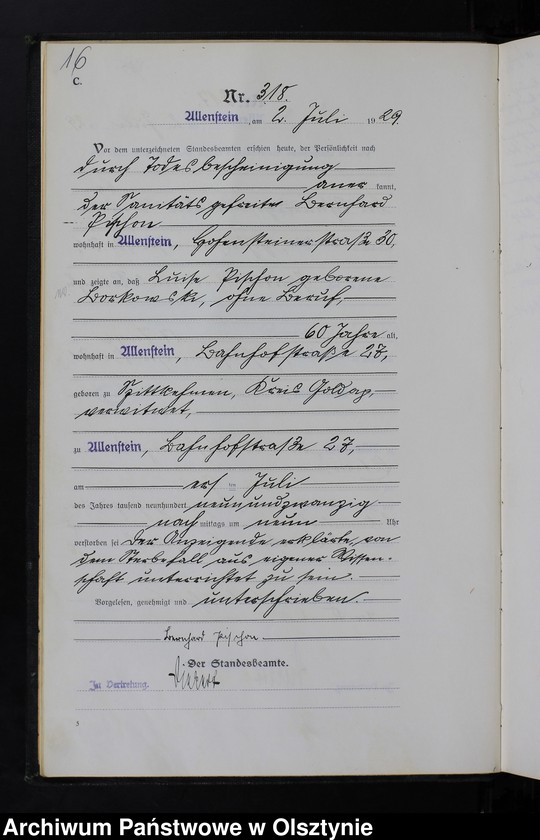 16
C.
Nr. 318.
Allenstein, am 2. Juli 1929.
Vor dem unterzeichneten Standesbeamten erschien heute, der Persönlichkeit nach
durch Todesbescheinigung
aner kannt,
der Sanitätsgefreite Bernhard
Pischon
wohnhaft in Allenstein, Hohensteinerstraße 30,
und zeigte an, daß Luise Pischon geborene
Borkowski, ohne Beruf,
60 Jahre alt,
wohnhaft in Allenstein, Bahnhofstraße 27,
geboren zu Szittkehmen, Kreis Goldap,
verwitwet,
zu Allenstein, Bahnhofstraße 27,
am ersten Juli
des Jahres tausend neunhundert neunundzwanzig
nach mittags um neun Uhr
verstorben sei. Der Anzeigende erklärte, von
dem Sterbefall aus eigener Wissen-
schaft unterrichtet zu sein.
Vorgelesen, genehmigt und unterschrieben.
Bernhard Pischon
Der Standesbeamte.
In Vertretung.
3
Archiwum Państwowe w Olsztynie